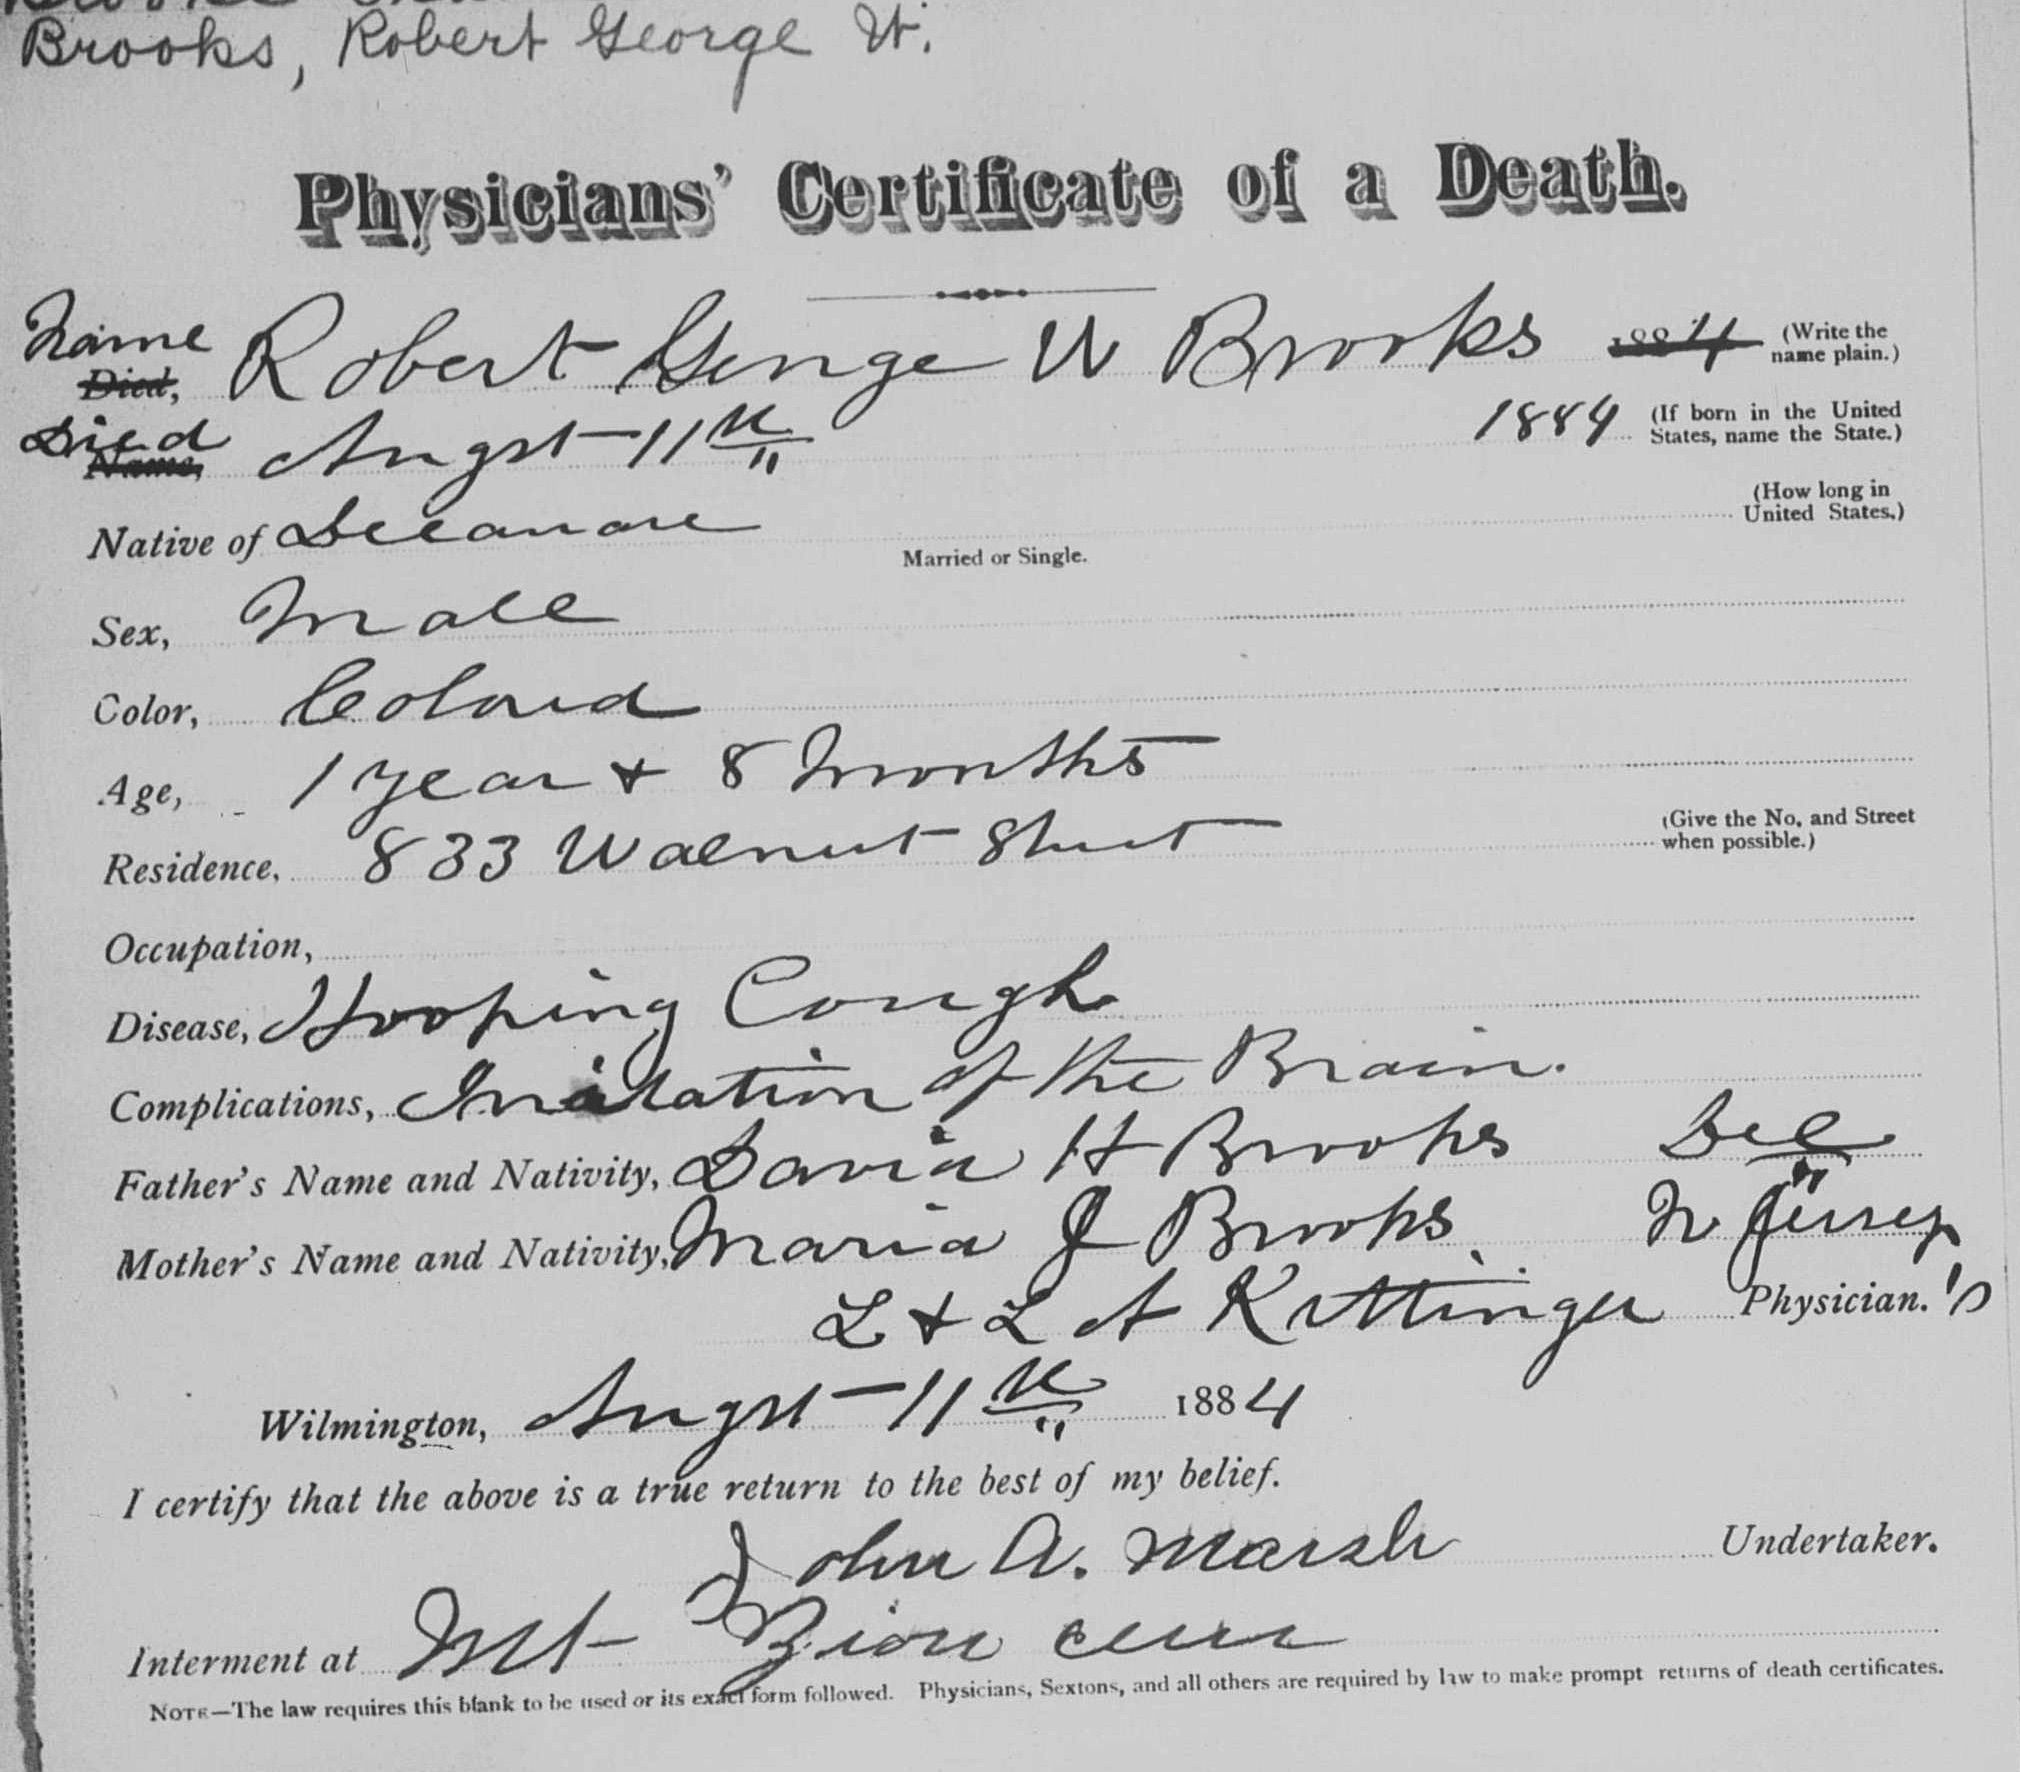 Brooks, Robert George W.
Physicians' Certificate of a Death.
Name
Died, Robert George W Brooks 1884 (Write the name plain.)
Died
Name, Augst 11th 1884 (If born in the United States, name the State.)
Native of Delaware (How long in United States.)
Married or Single.
Sex, Male
Color, Colord
Age, 1 year + 8 Months
Residence, 833 Walnut Street (Give the No. and Street when possible.)
Occupation,
Disease, Hooping Cough
Complications, Irritation of the Brain.
Father's Name and Nativity, David H Brooks Del
Mother's Name and Nativity, Maria J Brooks. N Jersey
L & L A Kittinger Physician.'s
Wilmington, Augst 11th 1884
I certify that the above is a true return to the best of my belief.
John A. Marsh Undertaker.
Interment at Mt Zion cem
NOTE—The law requires this blank to be used or its exact form followed. Physicians, Sextons, and all others are required by law to make prompt returns of death certificates.